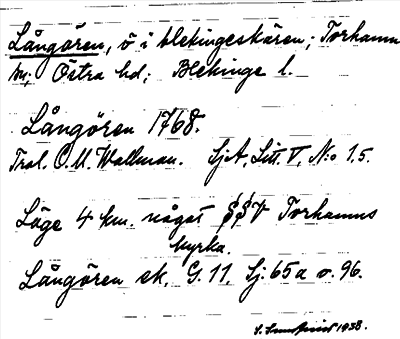 Långören, ö i blekingeskären; Torhamn
sn; Östra hd; Blekinge l.
Långören 1768.
Trol. C. U. Wallman. SjA, Litt. V, N:o 15.
Läge 4 km. något SSV Torhamns
kyrka.
Långören ek. G. 11, Sj. 65a o. 96.
S. 1938.